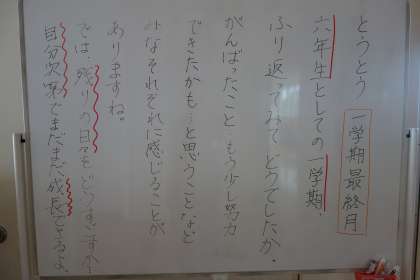 とうとう 一学期最終月
六年生としての一学期、
ふり返ってみてどうでしたか。
がんばったこと、もう少し努力
できたかも…と思うことなど
みなそれぞれに感じることが
ありますね。
では、残りの日々をどうすごすか。
自分次第でまだまだ成長できるよ。